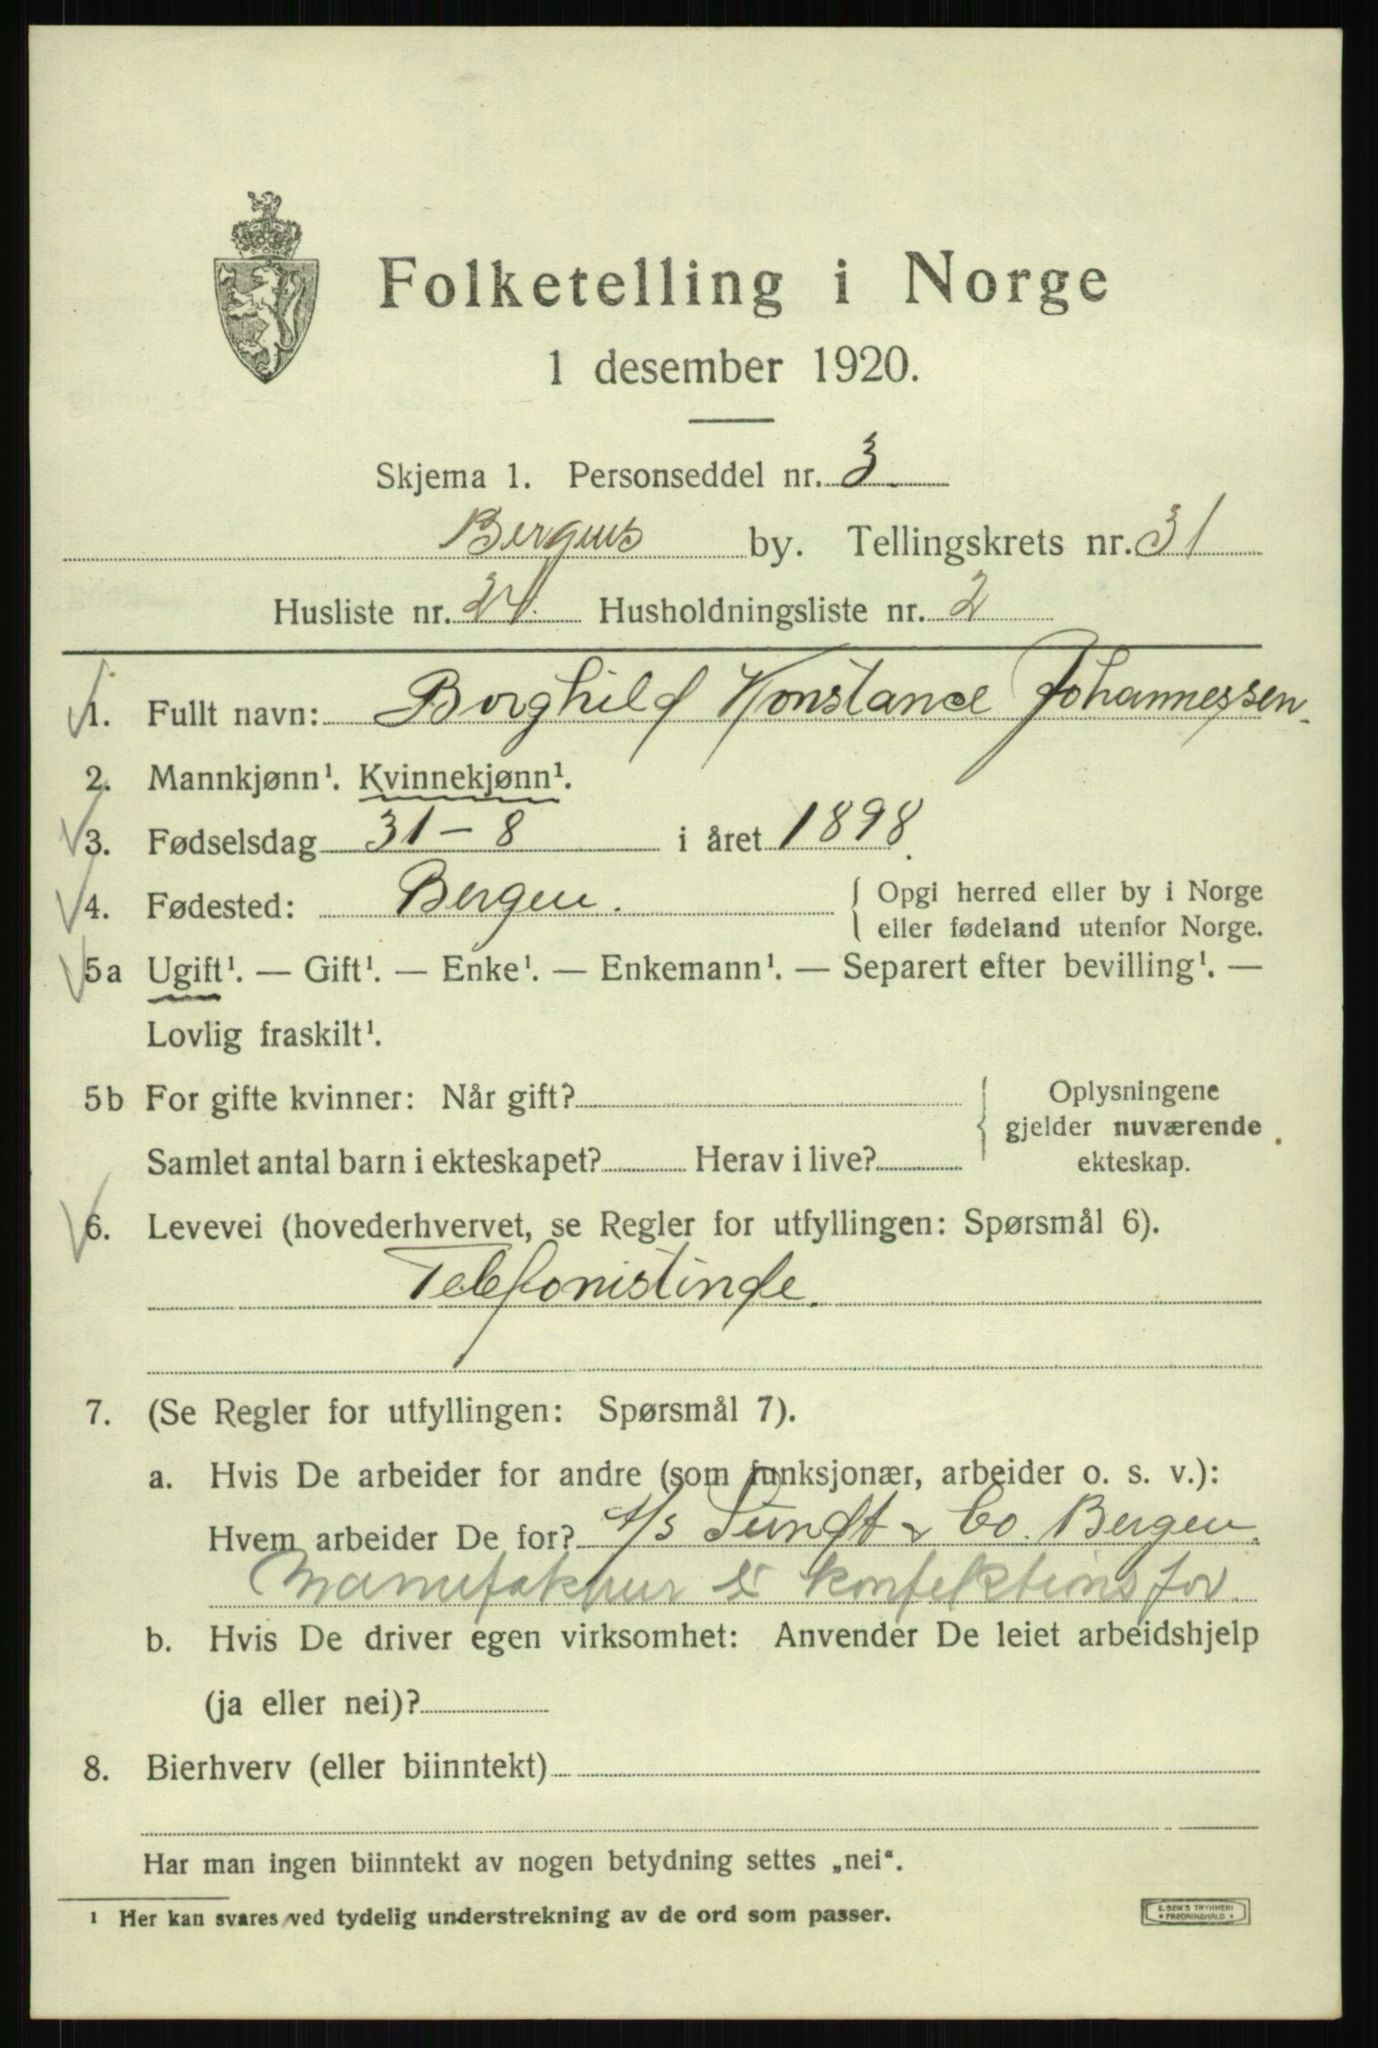 Folketelling i Norge
1 desember 1920.
Skjema 1. Personseddel nr. 3.
Bergens by. Tellingskrets nr. 31
Husliste nr. 24. Husholdningsliste nr. 2
1. Fullt navn: Borghild Konstanse Johannessen.
2. Mannkjønn¹. Kvinnekjønn¹.
3. Fødselsdag 31 - 8 i året 1898.
4. Fødested: Bergen. { Opgi herred eller by i Norge
eller fødeland utenfor Norge.
5a Ugift¹. — Gift¹. — Enke¹. — Enkemann¹. — Separert efter bevilling¹. —
Lovlig fraskilt¹.
5b For gifte kvinner: Når gift? { Oplysningene
gjelder nuværende
Samlet antal barn i ekteskapet? Herav i live? ekteskap.
6. Levevei (hovederhvervet, se Regler for utfyllingen: Spørsmål 6).
Telefonistinde.
7. (Se Regler for utfyllingen: Spørsmål 7).
a. Hvis De arbeider for andre (som funksjonær, arbeider o. s. v.):
Hvem arbeider De for? A/S Sundt & Co. Bergen.
Manufaktur & konfektionsfor.
b. Hvis De driver egen virksomhet: Anvender De leiet arbeidshjelp
(ja eller nei)?
8. Bierhverv (eller biinntekt)
Har man ingen biinntekt av nogen betydning settes „nei“.
¹ Her kan svares ved tydelig understrekning av de ord som passer.
E. SEM'S TRYKKERI
* FREDRIKSHALD *